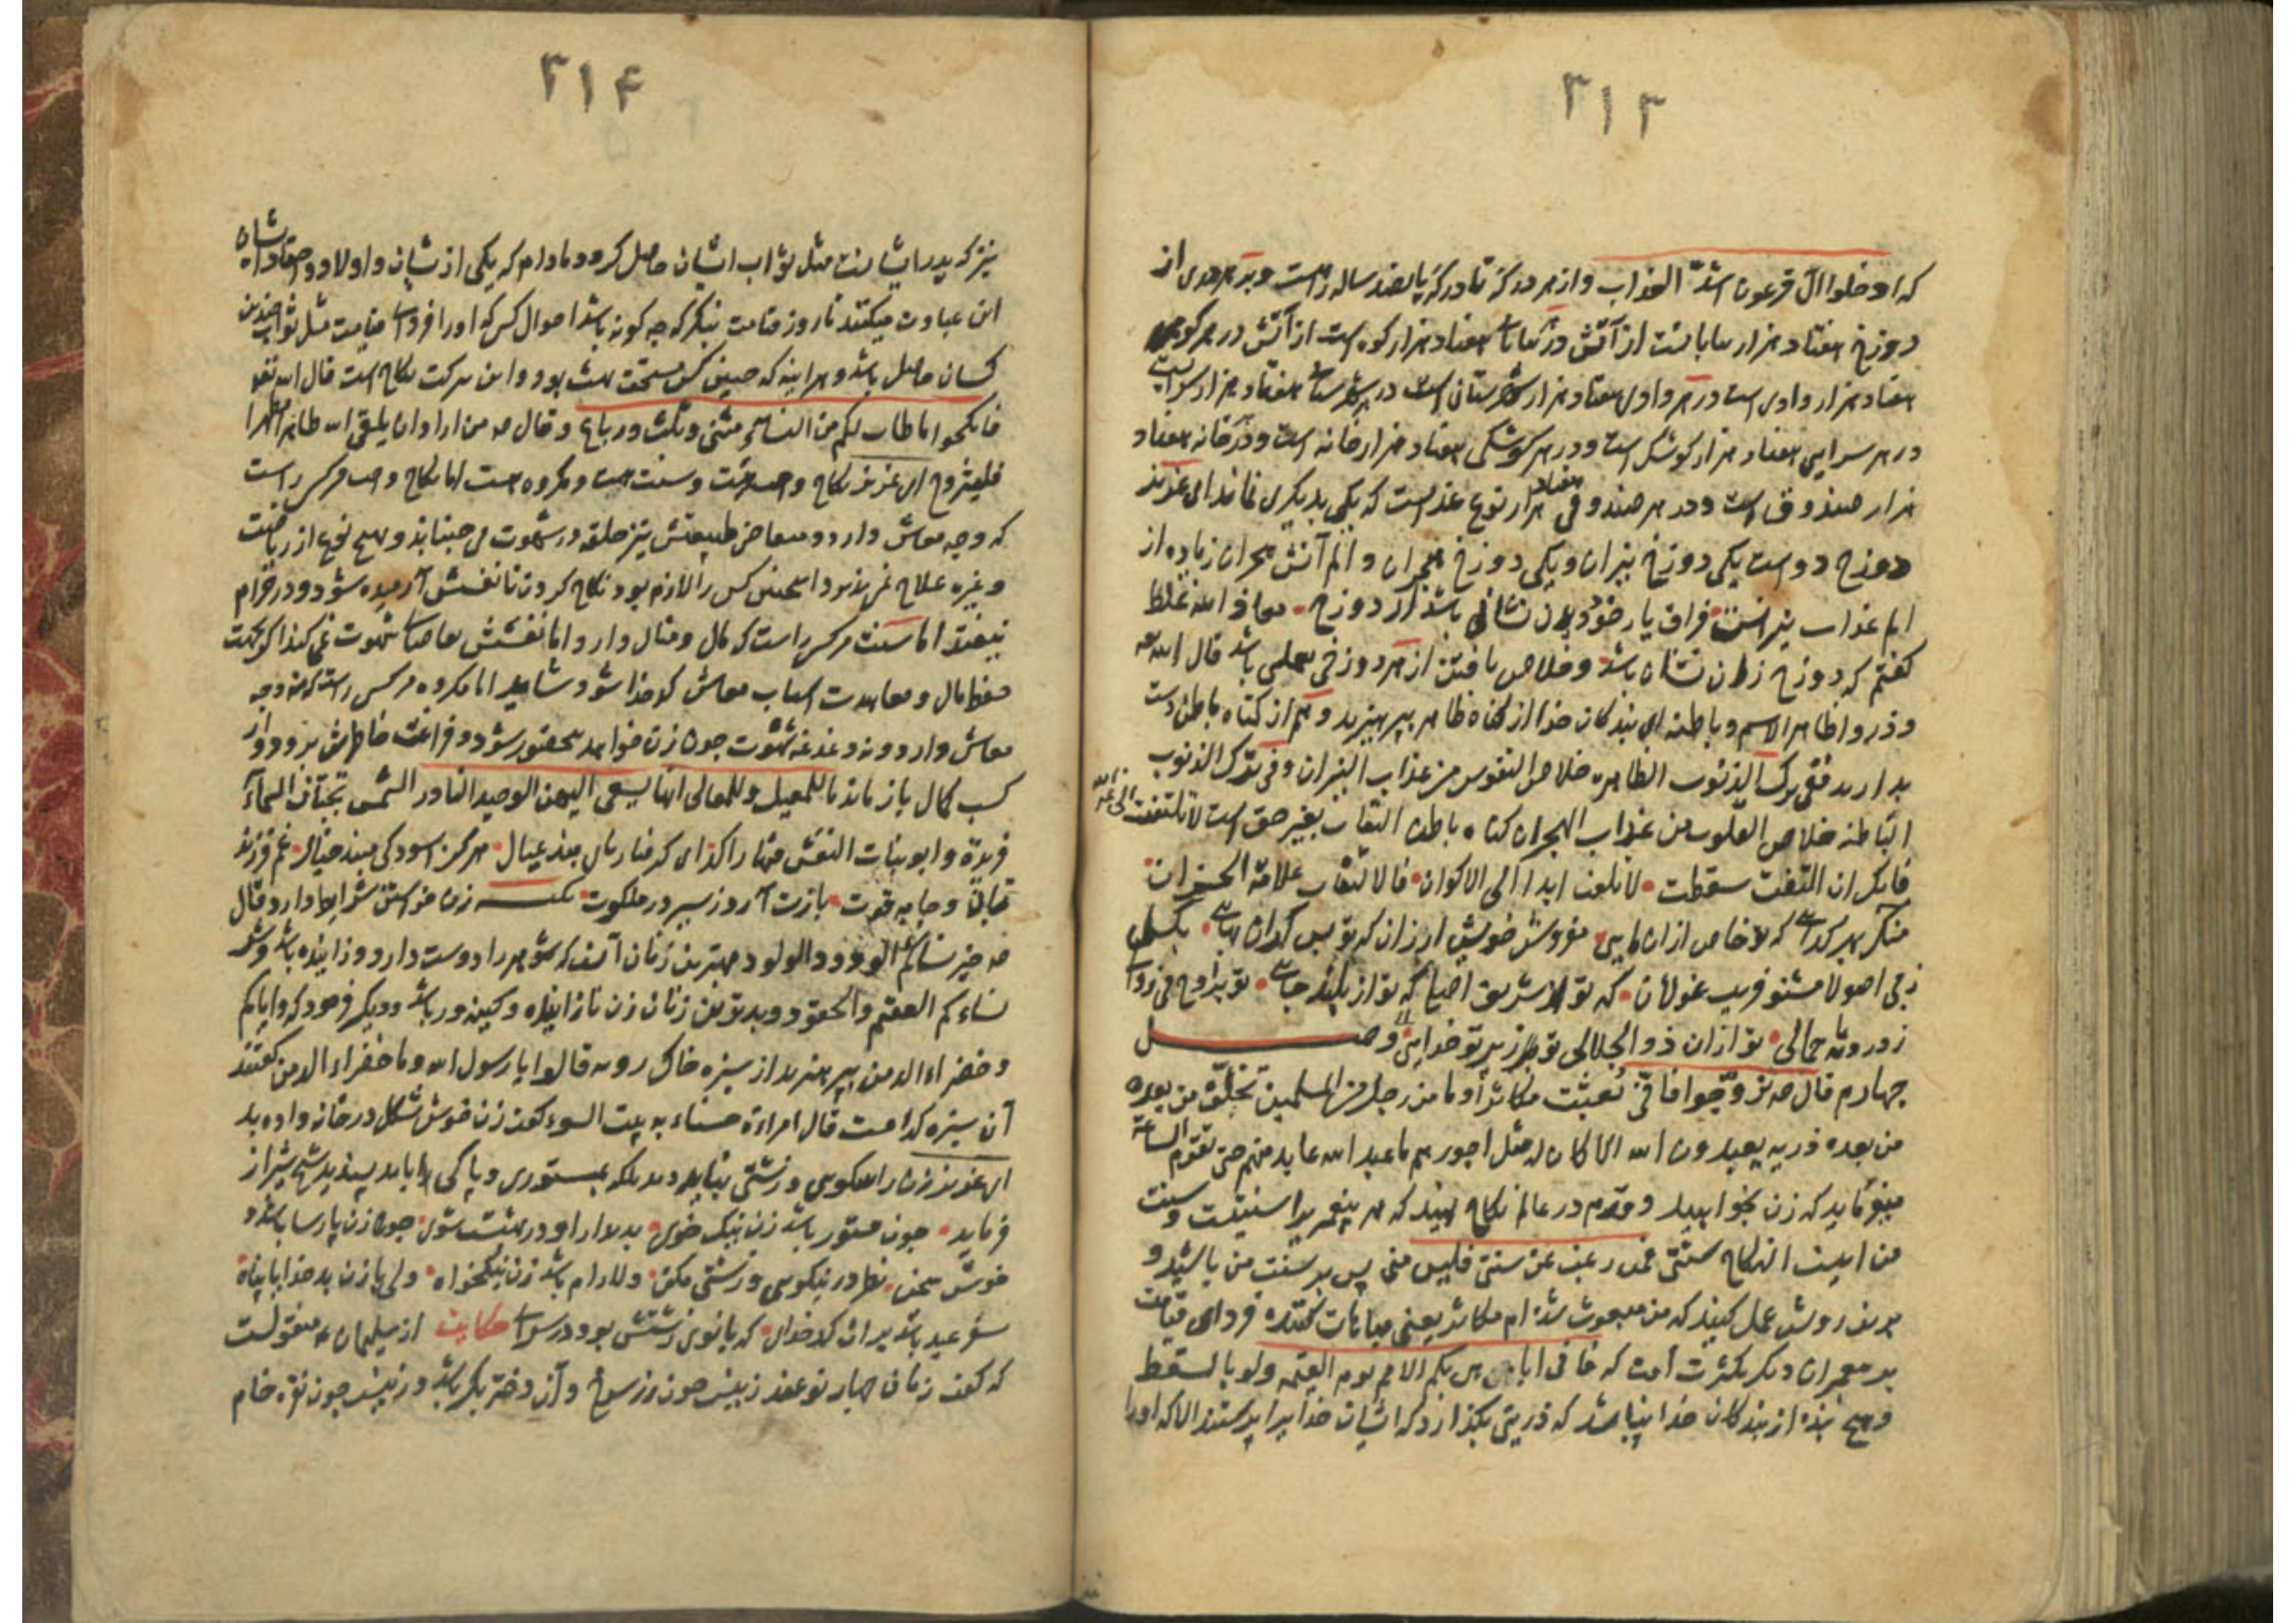 ۳۱۳
که ادخلوا آل فرعون اشدّ العذاب و از هر درکه تا درکه پانصد ساله راهست و بر هر دری از
دوزخ هفتاد هزار بیابانست از آتش در هر بیابانی هفتاد هزار کوه است از آتش در هر کوهی
هفتاد هزار وادی است در هر وادی هفتاد هزار شهرستان است در هر شهرستانی هفتاد هزار سرایست
در هر سرایی هفتاد هزار کوشک است و در هر کوشکی هفتاد هزار خانه است و در هر خانه هفتاد
هزار صندوق است و در هر صندوقی هفتاد هزار نوع عذابست که یکی بدیگری نماند ای عزیز
دوزخ دو است یکی دوزخ نیران و یکی دوزخ هجران و الم آتش هجران زیاده از
الم عذاب نیرانست فراق یار خود بدان نشانی باشد از دوزخ معاذ الله غلط
گفتم که دوزخ زان نشان باشد و خلاص یافتن از هر دوزخی بعملی باشد قال الله تعالی
و ذروا ظاهر الاثم و باطنه ای بندگان خدا از گناه ظاهر بپرهیزید و هم از گناه باطن دست
بدارید ففی ترک الذنوب الظاهره خلاص النفوس من عذاب النیران و فی ترک الذنوب
الباطنه خلاص القلوب من عذاب الهجران گناه باطن التفات بغیر حق است لا تلتفت الی غیر الله
فانک ان التفت سقطت لا تلتفت ابدا الی الاکوان فالالتفات علامة الخسران
منگر بهر گدایی که تو خاص از آن مایی مفروش خویش ارزان که تو بس گران بهایی بکسل
ز بی اصولان مشنو فریب غولان که تو از شریف اصلی که تو از بلند جایی تو بروح بی زوالی
ز درونه با جمالی تو از آن ذو الجلالی تو ز پرتو خدایی وصل
چهارم قال ص تزوّجوا فانّی بُعثت مکاثرا و ما من رجل من المسلمین تخلّف من بعده
من بعده ذریه یعبدون الله الا کان له مثل اجورهم ما عبد الله عابد منهم حتی تقوم الساعة
میفرماید که زن بخواهید و در عالم نکاح بنهید که هر پیغمبریرا سنتیست و سنت
من اینست النکاح سنتی فمن رغب عن سنتی فلیس منی پس بر سنت من باشید و
برین روش عمل کنید که من مبعوث شده‌ام مکاثر یعنی مباهات کننده فردای قیامت
بر پیغمبران دیگر بکثرت امت که فانی اباهی بکم الامم یوم القیمه ولو بالسقط
و هیچ بنده از بندگان خدا نباشد که ذریتی بگذارد که ایشان خدایرا پرستند الا که او را
۳۱۴
نیز که پدر ایشانست مثل ثواب ایشان حاصل گردد مادام که یکی از ایشان و اولاد و احفاد ایشان
این عبادت میکنند تا روز قیامت بنگر که چه گونه باشد احوال کس که او را فردای قیامت مثل ثواب چندین
کسان حاصل باشد و هر آینه که چنین کس مستحق بهشت بود و این برکت نکاح است قال الله تعالی
فانکحوا ما طاب لکم من النساء مثنی و ثلث و رباع و قال ص من اراد ان یلقی الله طاهرا مطهرا
فلیتزوج ای عزیز نکاح واجب هست و سنت هست و مکروه هست اما نکاح واجب مر کس راست
که وجه معاش دارد و متقاضی طبیعتش نیز حلقه در شهوت می جنباند و بهیچ نوع از ریاضت
و غیره علاج نمی پذیرد اینچنین کس را لازم بود نکاح کردن تا نفسش آرمیده شود و در حرام
نیفتد اما سنت مر کس راست که مال و منال دارد و اما نفسش تقاضای شهوت نمی کند اگر بجهت
حفظ مال و معاهدت اسباب معاش کدخدا شود شاید اما مکروه مر کس راست که نه وجه
معاش دارد و نه دغدغه شهوت چون زن خواهد بی حضور شود و فراغت خاطرش برود و از
کسب کمال باز ماند
ای گرفتار پای بند عیال هرگز آسودگی مبند خیال غم فرزند
و نان و جامه و قوت باز دارت ز سیر در ملکوت نکته زن خواستن شرایط دارد قال
ص خیر نسائکم الودود الولود بهترین زنان آنست که شوهر را دوست دارد و زاینده باشد و شر
نساءکم العقیم و الحقود و بدترین زنان زن نازاینده و کینه ور باشد و دیگر فرمود که و ایاکم
و خضراء الدمن بپرهیزید از سبزه خاک روبه قالوا یا رسول الله و ما خضراء الدمن گفتند
آن سبزه کدامست قال امراءة حسناء به بیت السوء گفت زن خوش شکل در خانواده بد
ای عزیز زن را بنکویی و زشتی نباید دید بلکه بمستوری و پاکی باید پسندید شیخ شیراز
فرماید چون مستور باشد زن نیک خوی بدیدار او در بهشتست شوی چون زن پارسا باشد و
خوش سخن نظر در نیکویی و زشتی مکن دلارام باشد زن نیکخواه ولی با زن بد خدایا پناه
سفر عید باشد بر آن کدخدای که بانوی زشتش بود در سرای حکایت از سلیمان ع منقولست
که گفت زنان چهار نوعند زنیست چون زر سرخ و آن دختر بکر باشد و زنیست چون نقره خام